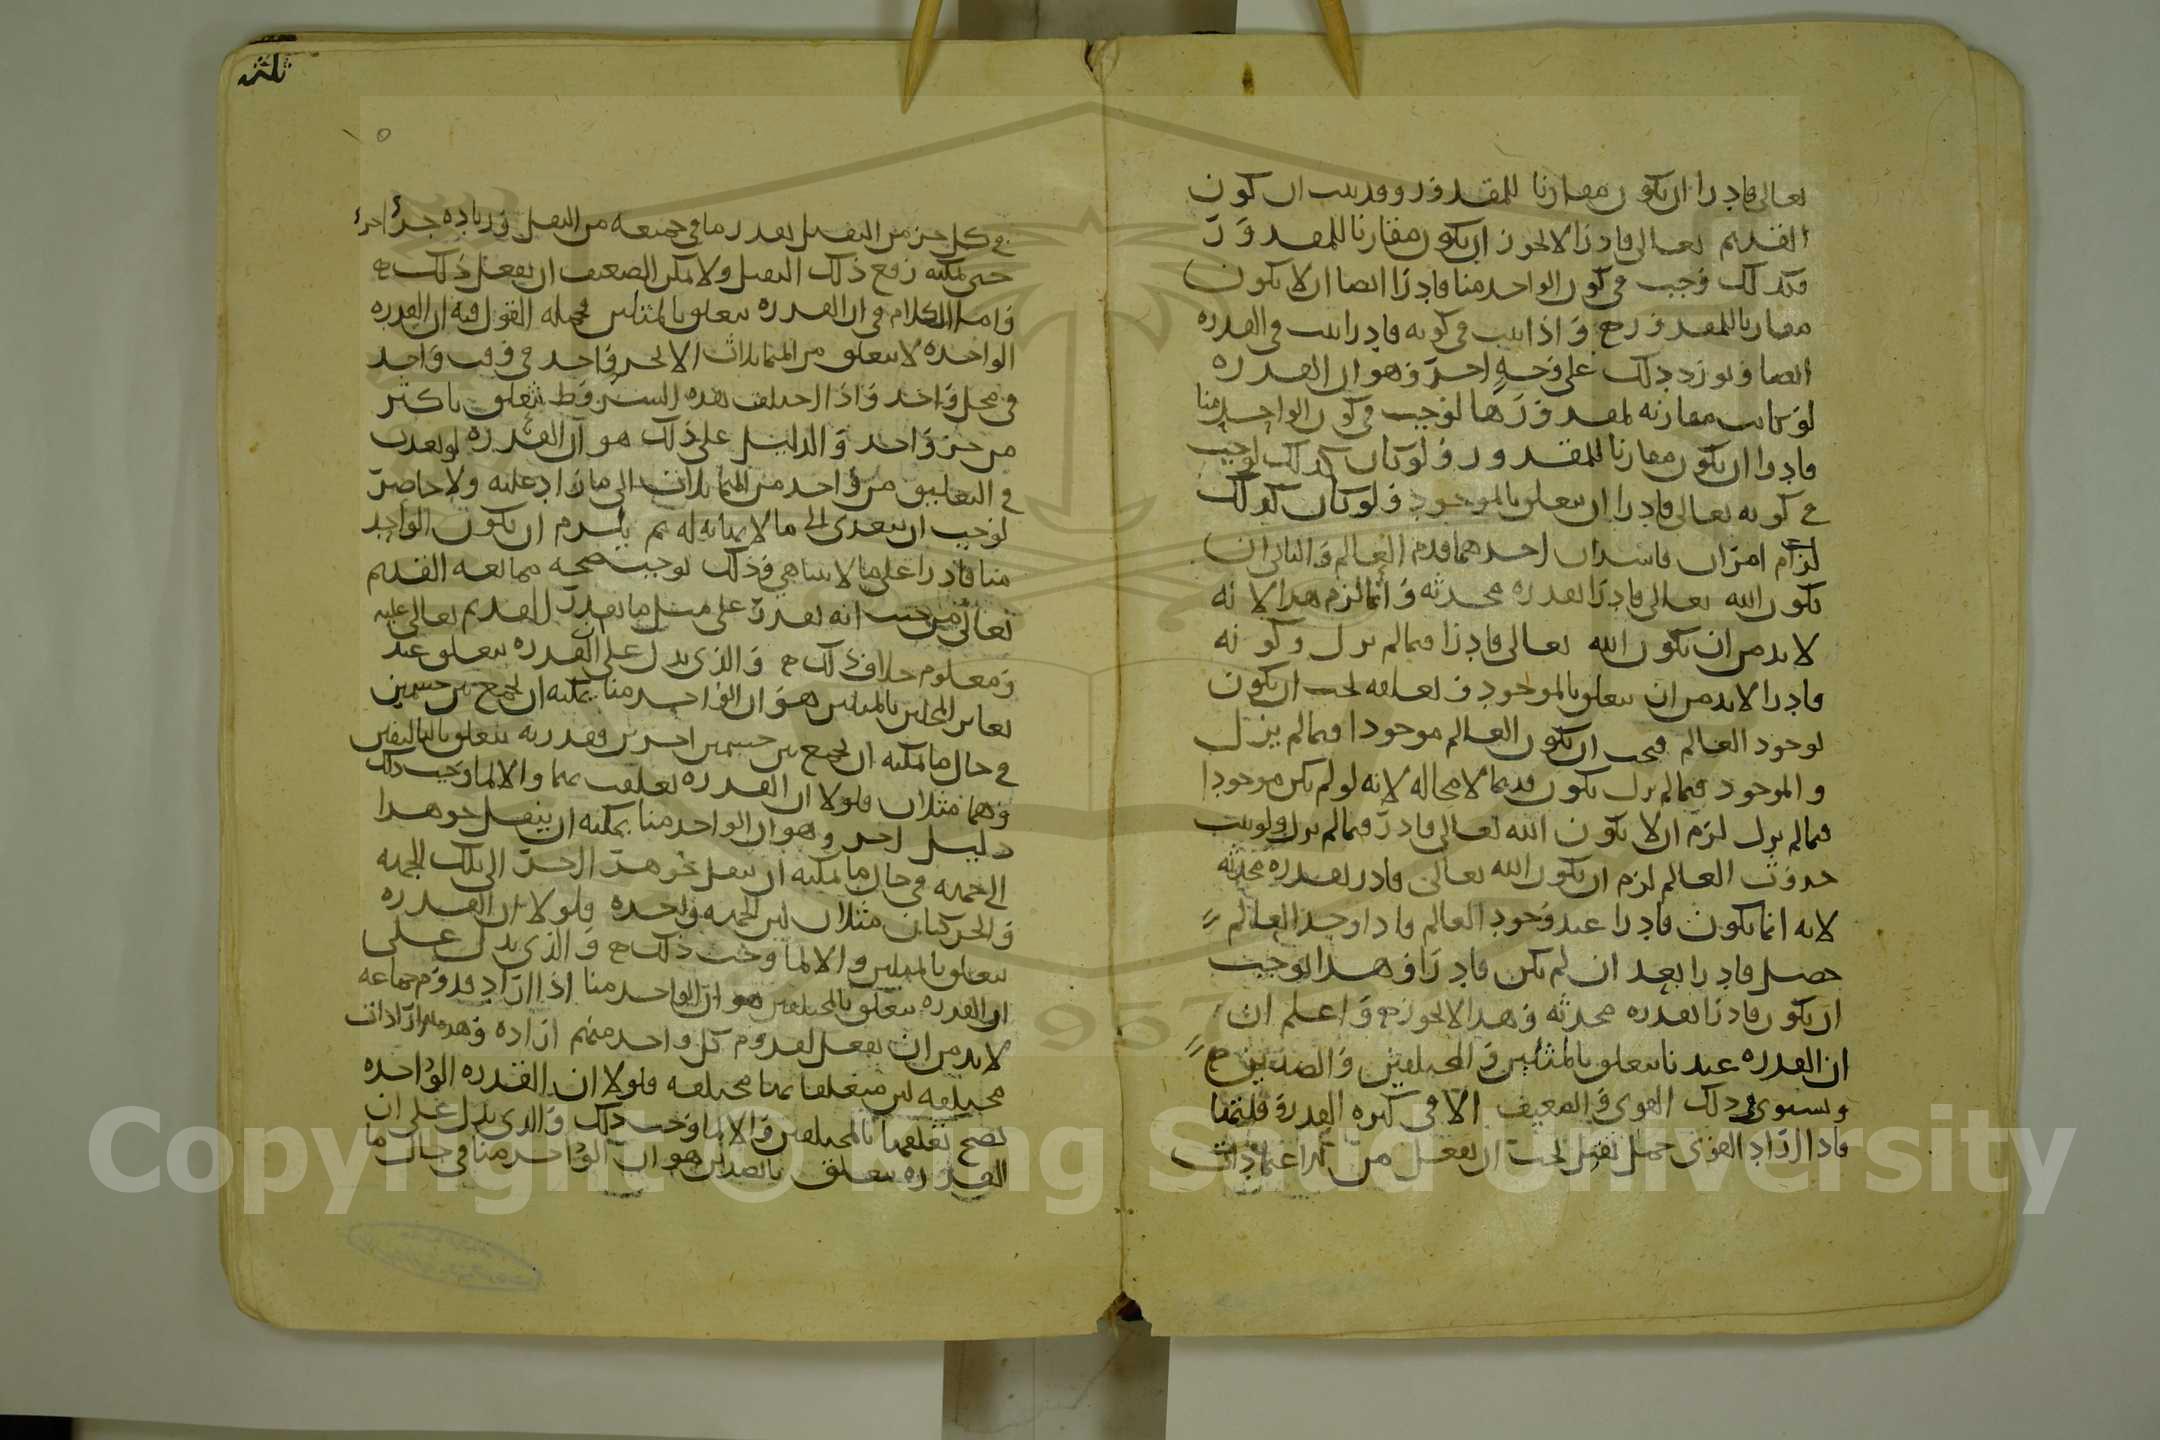 تعالى قادرا ان يكون مقارنا للمقدور وقد ثبت ان كون
القديم تعالى قادرا لا يجوز ان يكون مقارنا للمقدور
فكذلك وجب في كون الواحد منا قادرا ايضا ان لا يكون
مقارنا للمقدور واذا ثبت في كونه قادرا ثبت في القدره
ايضا ونورد ذلك على وجه اخر وهو ان القدره
لو كانت مقارنه لمقدورها لوجب في كون الواحد منا
قادرا ان يكون مقارنا للمقدور ولو كان كذلك لوجب
في كونه تعالى قادرا ان يتعلق بالموجود ولو كان كذلك
لزم امران فاسدان احدهما قدم العالم والثاني ان
يكون الله تعالى قادرا بقدره محدثه وانما لزم هذا لانه
لا بد من ان يكون الله تعالى قادرا فيما لم يزل وكونه
قادرا لا بد من ان يتعلق بالموجود وتعلقه يجب ان يكون
لوجود العالم فيجب ان يكون العالم موجودا فيما لم يزل
والموجود فيما لم يزل يكون قديما لا محاله لانه لو لم يكن موجودا
فيما لم يزل لزم ان لا يكون الله تعالى قادرا فيما لم يزل ولو ثبت
حدوث العالم لزم ان يكون الله تعالى قادرا بقدره محدثه
لانه انما يكون قادرا عند وجود العالم فاذا وجد العالم
حصل قادرا بعد ان لم يكن قادرا وهذا يوجب
ان يكون قادرا بقدره محدثه وهذا لا يجوز واعلم ان
ان القدره عندنا تتعلق بالمثلين والمختلفين والضدين
ويستوي في ذلك القوي والضعيف الا في كثره القدرة وقلتها
فاذا اراد القوي حمل ثقيل يجب ان يفعل من الاعتمادات
ثلثه
في كل جزء من الثقيل بقدر ما في جميعه من الثقل وزياده جزء اخر
حتى يمكنه رفع ذلك الثقيل ولا يمكن الضعيف ان يفعل ذلك
واما الكلام في ان القدره تتعلق بالمثلين فجمله القول فيه ان القدره
الواحده لا تتعلق من المتماثلات الا بجزء واحد في وقت واحد
في محل واحد واذا اختلف هذه الشروط تتعلق باكثر
من جزء واحد والدليل على ذلك هو ان القدره لو تعدت
في التعليق من واحد من المتماثلات الى ما زاد عليه ولا حاصر
لوجب ان تتعدى الى ما لا نهايه له ثم يلزم ان يكون الواحد
منا قادرا على ما لا يتناهى وذلك يوجب صحه ممانعه القديم
تعالى من حيث انه يقدر على مثل ما يقدر القديم تعالى عليه
ومعلوم خلاف ذلك والذي يدل على ان القدره تتعلق عند
تغاير المحلين بالمثلين هو ان الواحد منا يمكنه ان يجمع بين جسمين
في حال ما يمكنه ان يجمع بين جسمين اخرين وقدرته تتعلق بالتاليفين
وهما مثلان فلولا ان القدره تعلقت بهما والا لما وجب ذلك
دليل اخر وهو ان الواحد منا يمكنه ان ينقل جوهرا
الى جهه في حال ما يمكنه ان ينقل جوهر اخر الى تلك الجهه
والحركتان مثلان لان الجهه واحده فلولا ان القدره
تتعلق بالمثلين والا لما وجب ذلك والذي يدل على
ان القدره تتعلق بالمختلفين هو ان الواحد منا اذا اراد قدوم جماعه
لا بد من ان يفعل لقدوم كل واحد منهم اراده وهذه الارادات
مختلفه لان متعلقاتها مختلفه فلولا ان القدره الواحده
يصح تعلقها بالمختلفين والا لما وجب ذلك والذي يدل على ان
القدره تتعلق بالضدين هو ان الواحد منا في حال ما
Copyright © King Saud University
1957